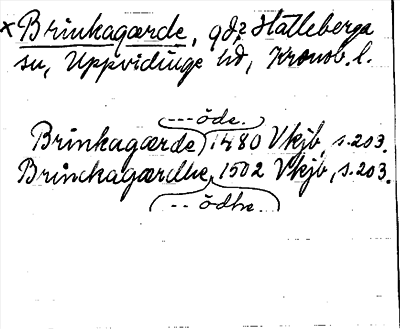 ×Brinkagærde, gd? Hälleberga
sn, Uppvidinge hd, Kronob. l.
--- öde.
Brinkagærde 1480 Vkjb, s. 203.
Brinckagærdhe, 1502 Vkjb, s. 203.
--- ödhe.